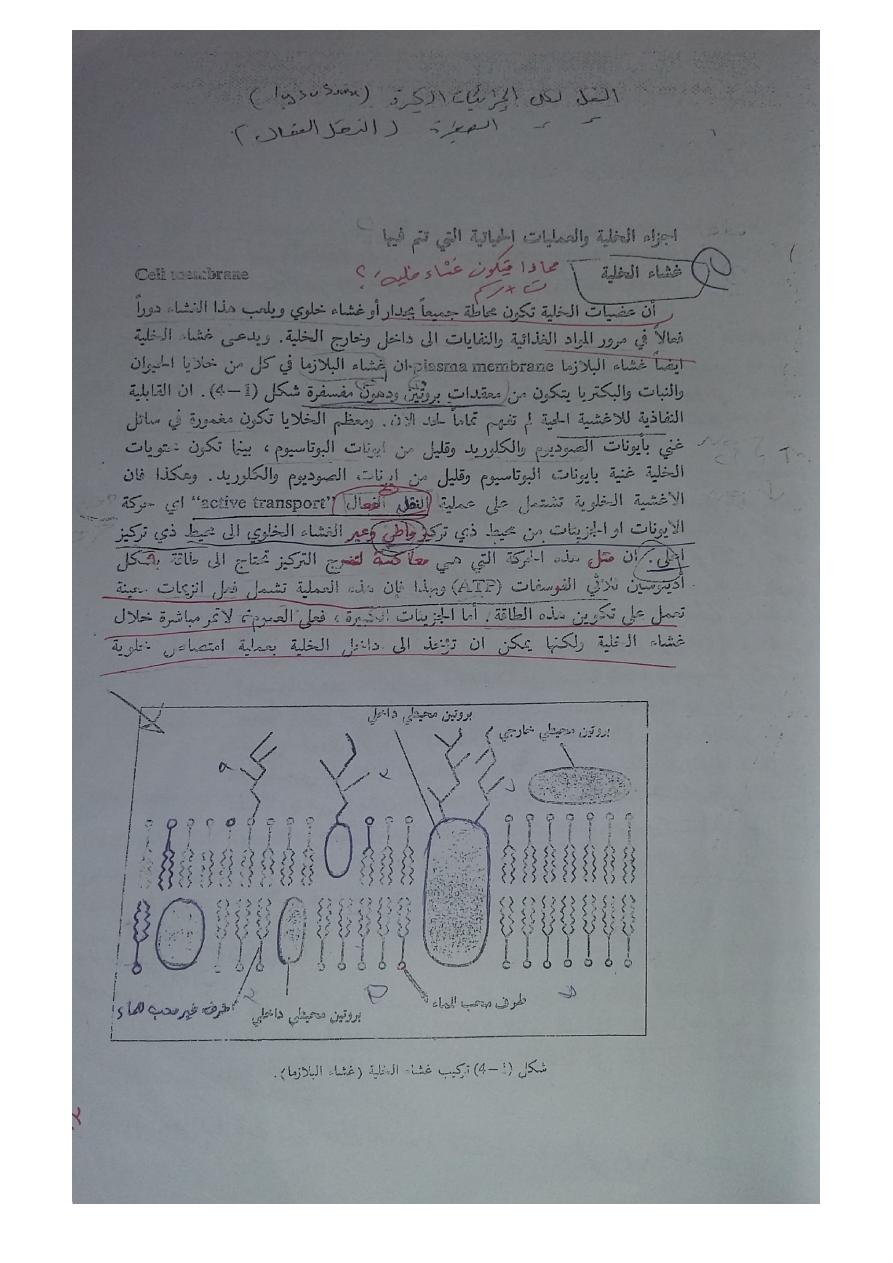 النقل لكل الجزئيات الكبيرة
الصغيرة ( النقل الفعال )
اجزاء الخلية والعمليات الحياتية التي تتم فيها
غشاء الخلية مماذا يتكون غشاء خلية ؟ Cell membrane
أن عضيات الخلية تكون محاطة جميعاً بجدار أو غشاء خلوي ويلعب هذا الغشاء دوراً
فعالاً في مرور المواد الغذائية والنفايات الى داخل وخارج الخلية. ويدعى غشاء الخلية
ايضاً غشاء البلازما plasma membrane ان غشاء البلازما في كل من خلايا الحيوان
والنبات والبكتريا يتكون من معقدات بروتين ودهون مفسفرة شكل (1–4). ان القابلية
النفاذية للاغشية الحية لم تفهم تماماً لحد الان. ومعظم الخلايا تكون مغمورة في سائل
غني بأيونات الصوديوم والكلوريد وقليل من ايونات البوتاسيوم ، بينما تكون محتويات
الخلية غنية بايونات البوتاسيوم وقليل من ايونات الصوديوم والكلوريد. وهكذا فان
الاغشية الخلوية تشتمل على عملية النقل الفعال "active transport" اي حركة
الايونات او الجزيئات من محيط ذي تركيز واطي وعبر الغشاء الخلوي الى محيط ذي تركيز
اعلى. ان مثل هذه الحركة التي هي معاكسة لتدرج التركيز تحتاج الى طاقة بشكل
أدينوسين ثلاثي الفوسفات (ATP) وبهذا فإن هذه العملية تشمل فعل انزيمات معينة
تعمل على تكوين هذه الطاقة. أما الجزيئات الكبيرة ، فعلى العموم لاتمر مباشرة خلال
غشاء الخلية ولكنها يمكن ان تؤخذ الى داخل الخلية بعملية امتصاص خلوية
بروتين محيطي داخلي
بروتين محيطي خارجي
طرف محب للماء
بروتين محيطي داخلي
طرف غير محب للماء
شكل (1–4) تركيب غشاء الخلية (غشاء البلازما).